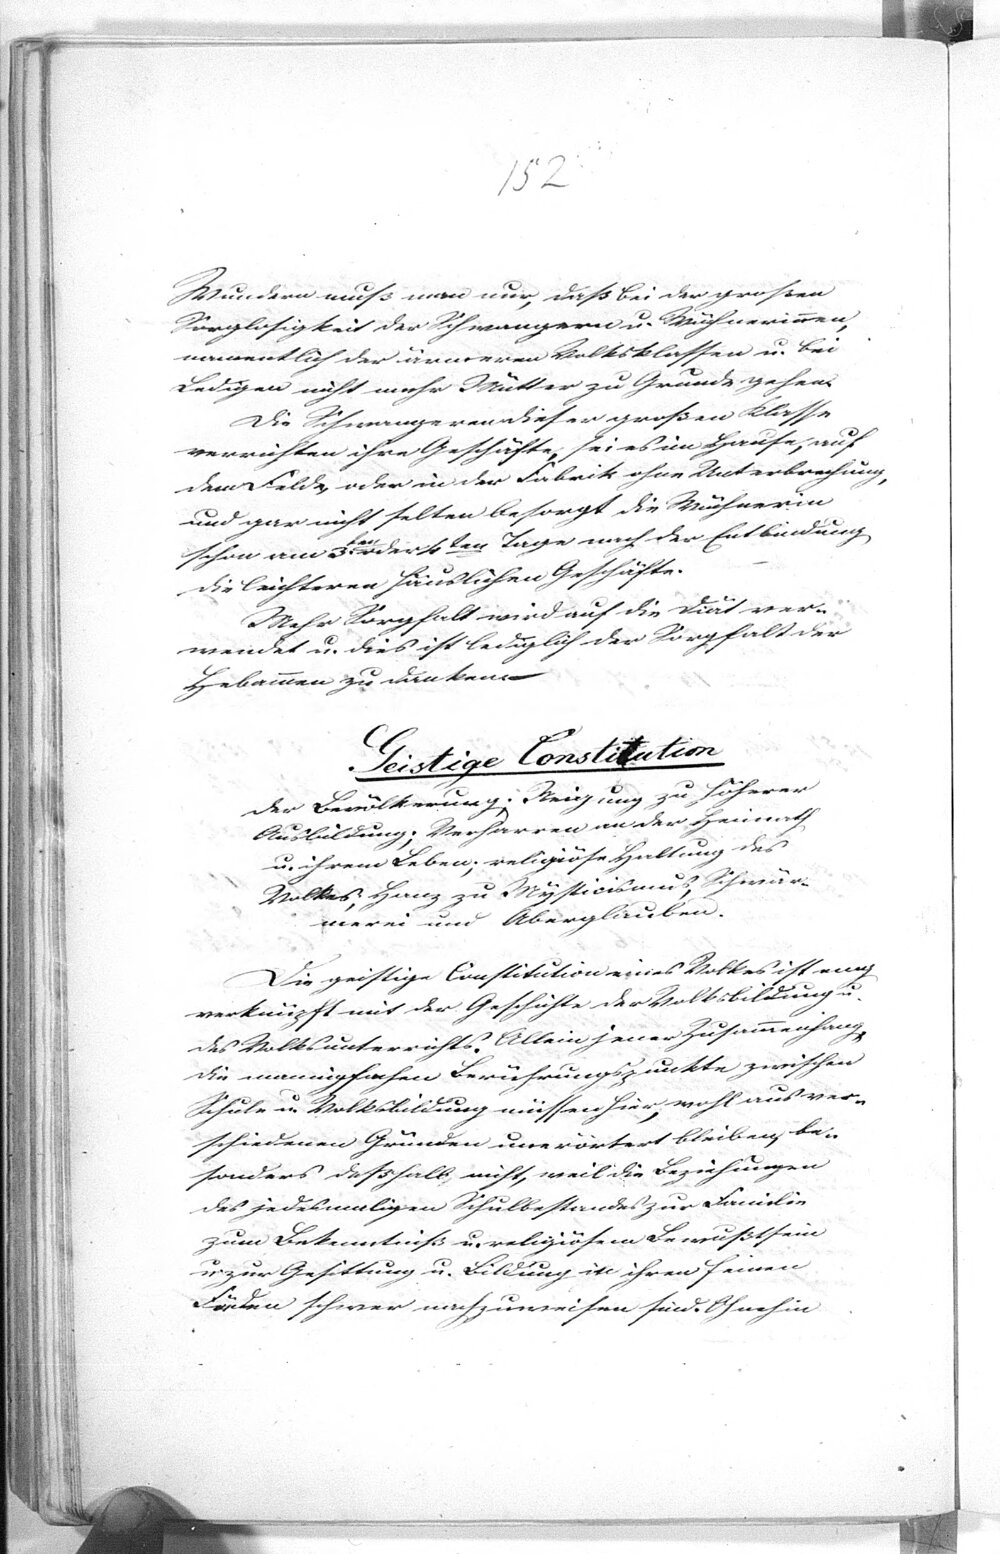 152
Wundern muß man nur, daß bei der großen
Sorglosigkeit der Schwangern u. Wöchnerinnen,
namentlich der ärmeren Volksklassen u. bei
Ledigen nicht mehr Mütter zu Grunde gehen.
Die Schwangeren dieser großen Klasse
verrichten ihre Geschäfte, sei es im Hause, auf
dem Felde, oder in der Fabrik ohne Unterbrechung,
und gar nicht selten besorgt die Wöchnerin
schon am 3ten oder 4ten Tage nach der Entbindung
die leichteren häuslichen Geschäfte.
Mehr Sorgfalt wird auf die Diät ver-
wendet u. dies ist lediglich der Sorgfalt der
Hebammen zu danken.
Geistige Constitution
der Bevölkerung; Neigung zu höherer
Ausbildung; Verharren an der Heimath
u. ihrem Leben; religiöse Haltung des
Volkes; Hang zu Mysticismus, Schwär-
merei und Aberglauben.
Die geistige Constitution eines Volkes ist eng
verknüpft mit der Geschichte der Volksbildung u.
des Volksunterrichts. Allein jener Zusammenhang,
die mannigfachen Berührungspunkte zwischen
Schule u. Volksbildung müssen hier, wohl aus ver-
schiedenen Gründen unerörtert bleiben, be-
sonders deßhalb nicht, weil die Beziehungen
des jedesmaligen Schulbestandes zur Familie
zum Bekenntniß u. religiösem Bewußtsein
u. zur Gesittung u. Bildung in ihren feinen
Fäden schwer nachzuweisen sind. Ohnehin